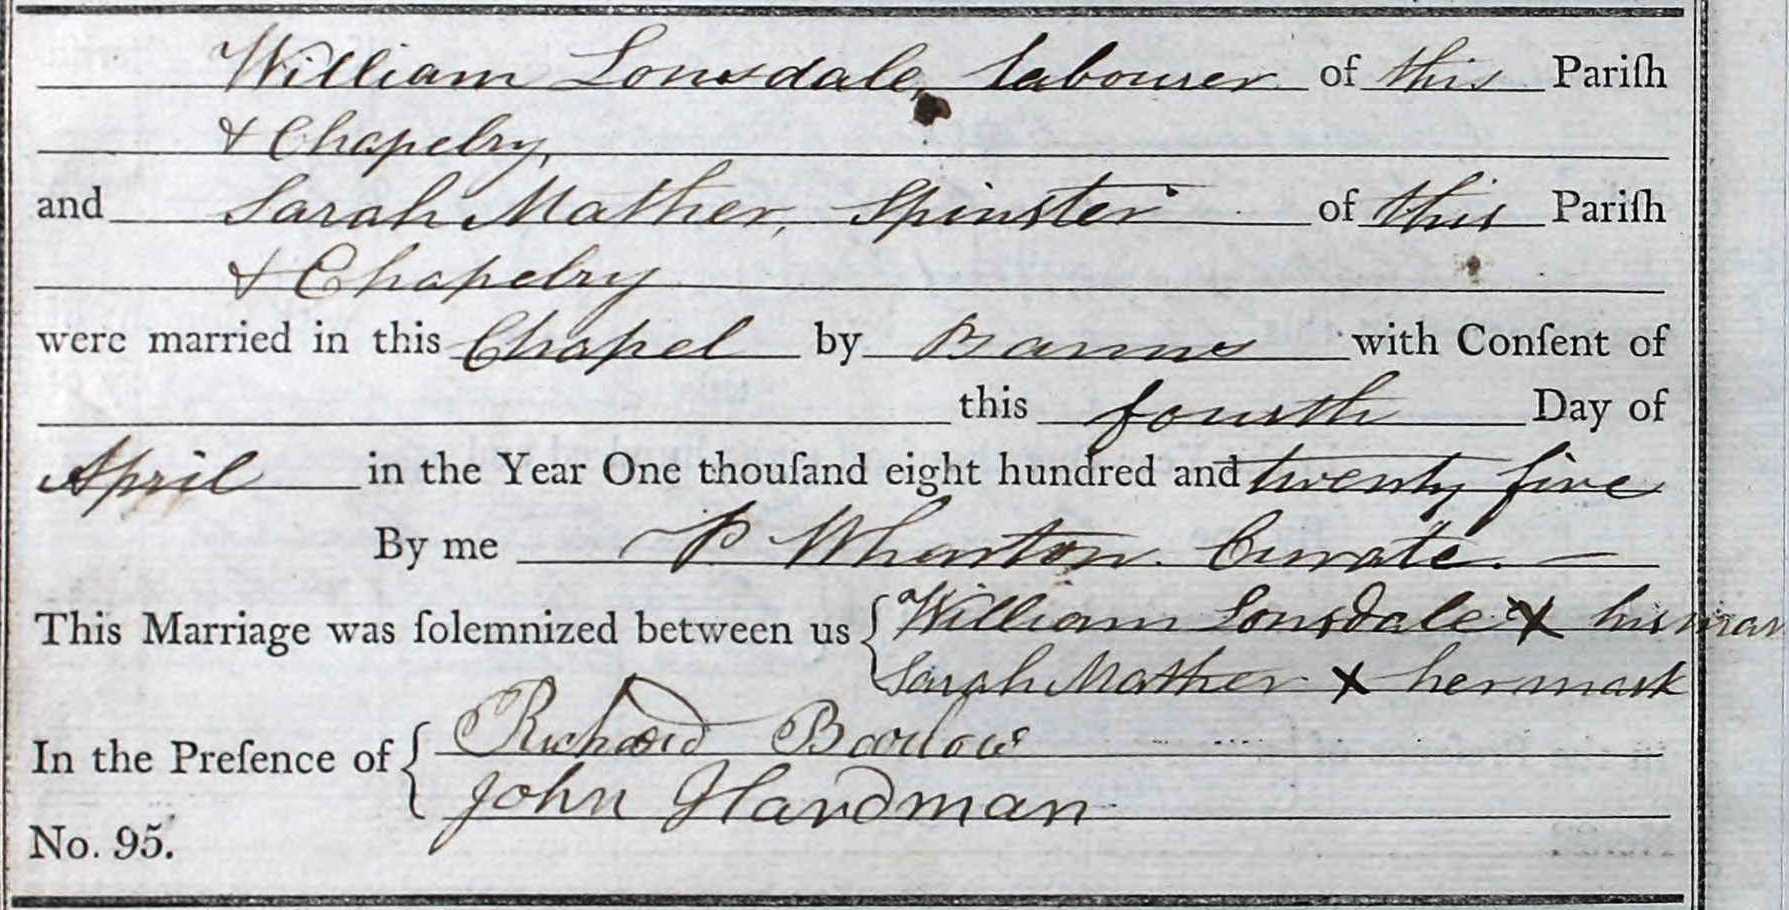 William Lonsdale, labourer of this Pariſh
& Chapelry,
and Sarah Mather, Spinster of this Pariſh
& Chapelry
were married in this Chapel by Banns with Conſent of
this fourth Day of
April in the Year One thouſand eight hundred and twenty five
By me P Wharton. Curate.
This Marriage was ſolemnized between us { William Lonsdale X his mar
Sarah Mather X her mark
In the Preſence of { Richard Barlow
John Hardman
No. 95.